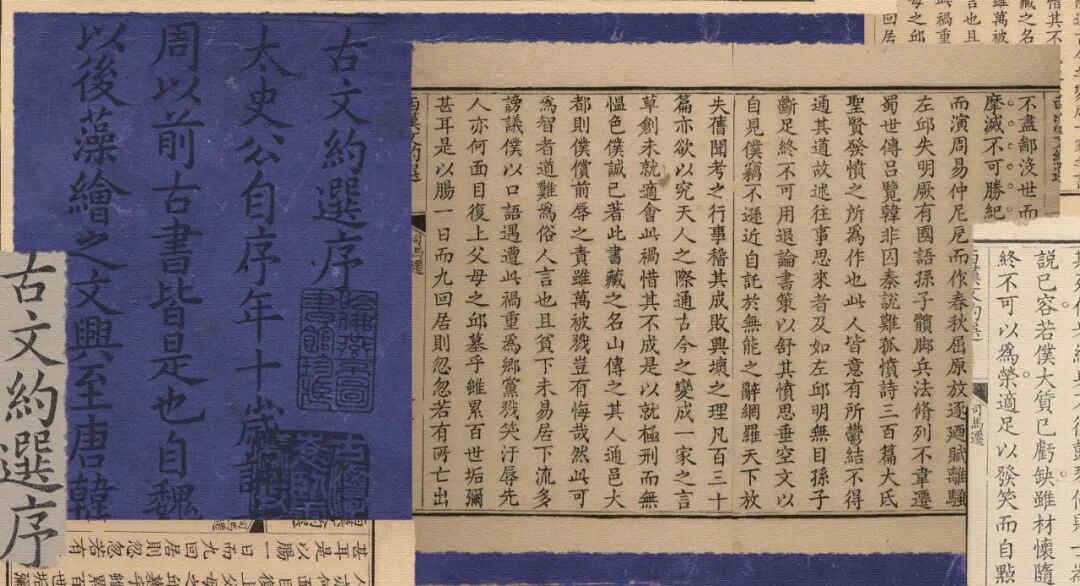 古文約選序
太史公自序年十歲誦
周以前古書皆是也自魏
以後藻繪之文興至唐韓
古文約選序
不盡鄙沒世而
摩滅不可勝紀
而演周易仲尼戹而作春秋屈原放逐廼賦離騷
左邱失明厥有國語孫子髕脚兵法脩列不韋遷
蜀世傳呂覽韓非囚秦說難孤憤詩三百篇大氐
聖賢發憤之所爲作也此人皆意有所鬱結不得
通其道故述往事思來者及如左邱明無目孫子
斷足終不可用退論書策以舒其憤思垂空文以
自見僕竊不遜近自託於無能之辭網羅天下放
失舊聞考之行事稽其成敗興壞之理凡百三十
篇亦欲以究天人之際通古今之變成一家之言
草創未就適會此禍惜其不成是以就極刑而無
慍色僕誠已著此書藏之名山傳之其人通邑大
都則僕償前辱之責雖萬被戮豈有悔哉然此可
爲智者道難爲俗人言也且貧下未易居下流多
謗議僕以口語遇遭此禍重爲鄉黨戮笑汙辱先
人亦何面目復上父母之邱墓乎維累百世垢彌
甚耳是以腸一日而九回居則忽忽若有所亡出
司馬遷
說已容若僕大質已虧缺雖材懷隨
終不可以爲榮適足以發笑而自點
司馬遷
甚耳是以腸一日而九回居則忽忽若有
司馬遷